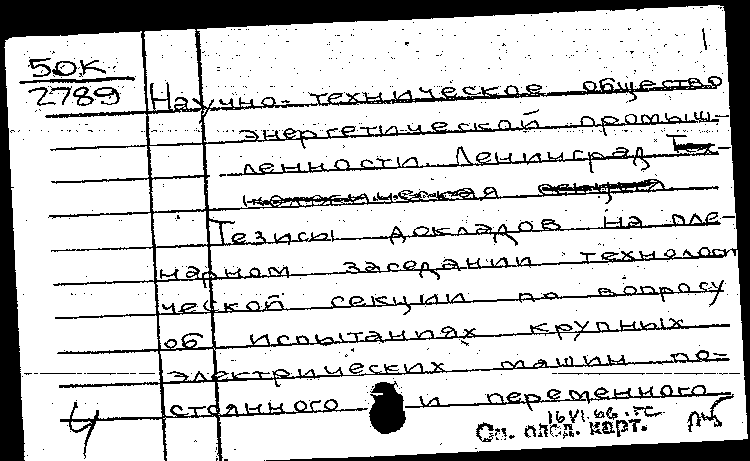 50К
2789
1
Научно-техническое общество
энергетической промыш-
ленности. Ленинград. Тех-
нологическая секция.
Тезисы докладов на пле-
нарном заседании технологи
ческой секции по вопросу
об испытаниях крупных
электрических машин по-
стоянного и переменного
4
16 VI.66.
См. след. карт.